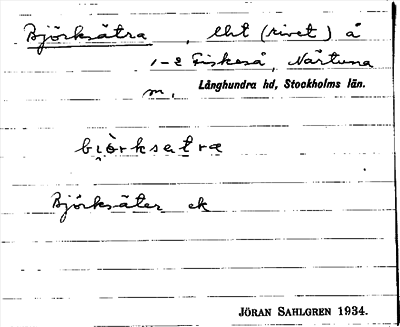 Björksätra, lht (rivet) å
1-2 Fiskeså, Närtuna
sn, Långhundra hd, Stockholms län.
biòrksetra
Björksäter ek
JÖRAN SAHLGREN 1934.